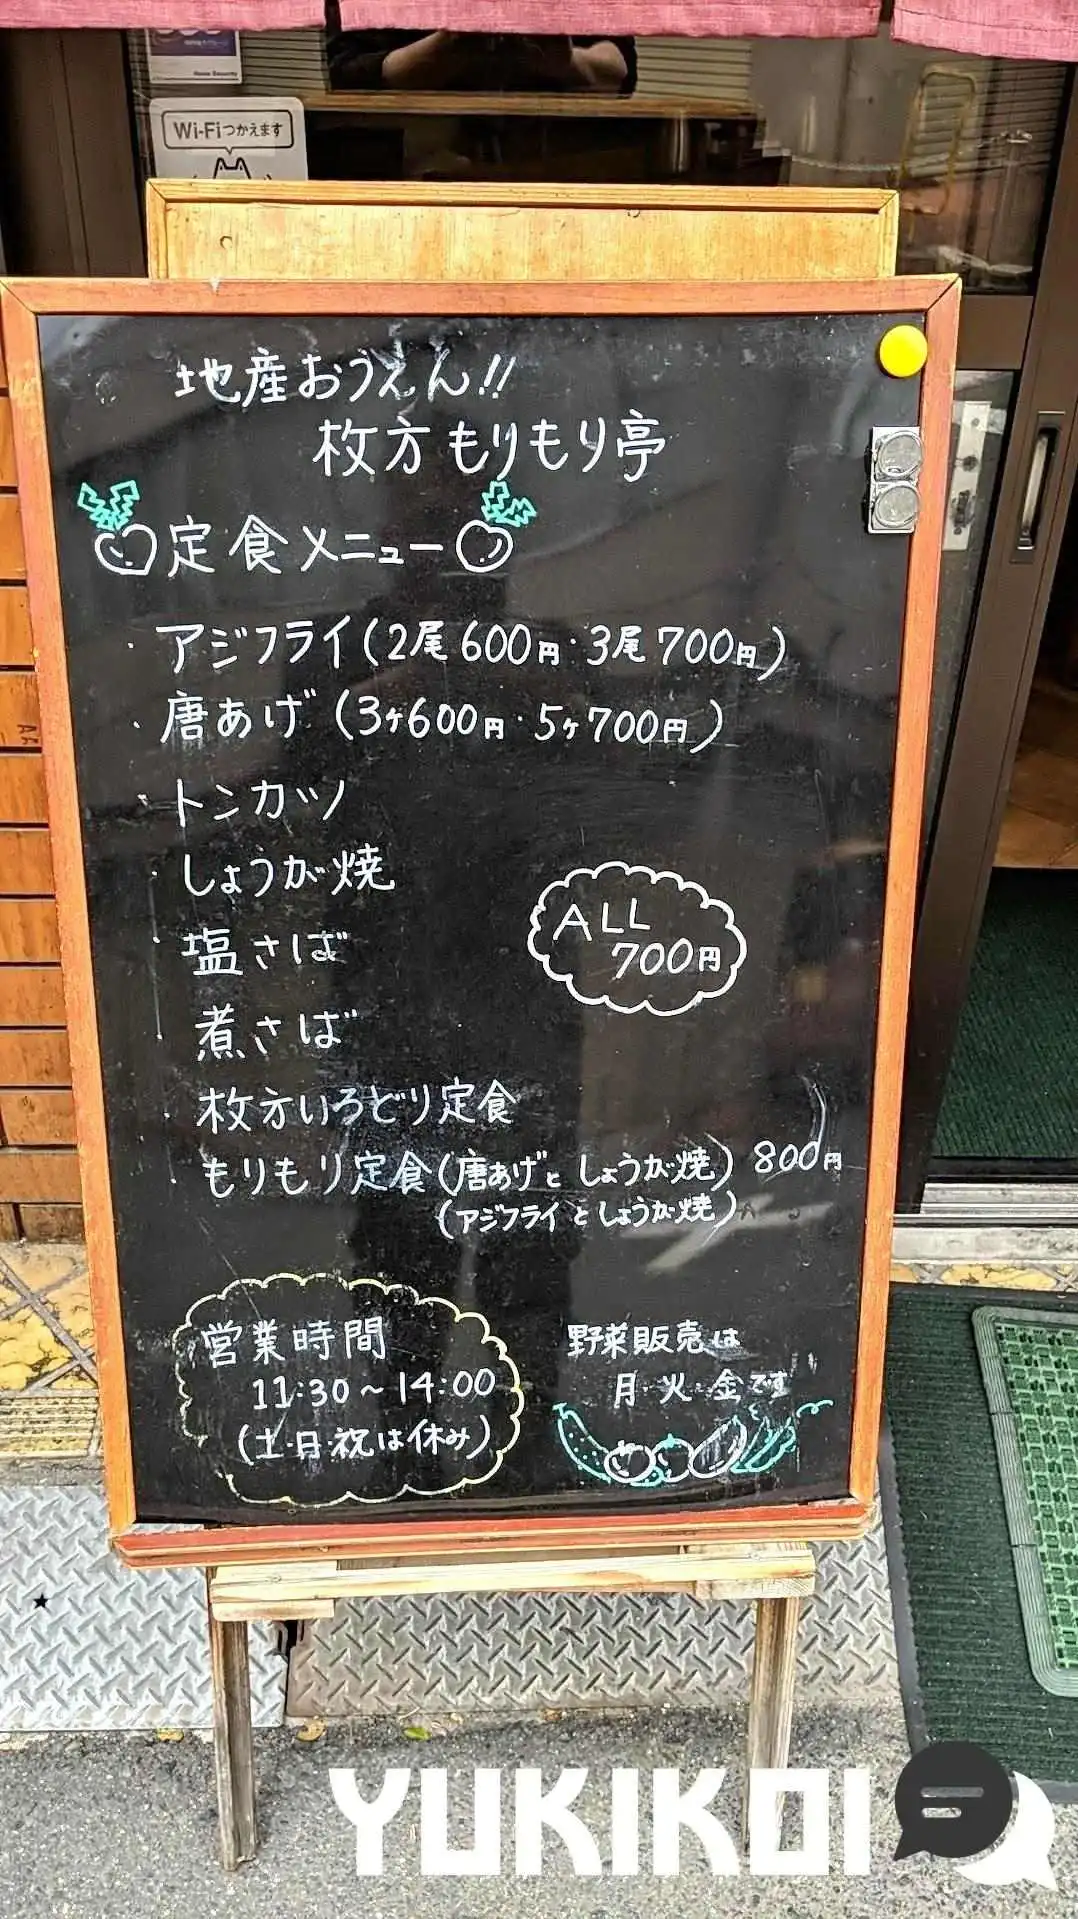 Wi-Fiつかえます
地産おうえん!!
枚方もりもり亭
定食メニュー
・アジフライ(2尾600円・3尾700円)
・唐あげ(3ヶ600円・5ヶ700円)
・トンカツ
・しょうが焼
・塩さば
・煮さば
ALL
700円
・枚方いろどり定食
・もりもり定食(唐あげとしょうが焼) 800円
(アジフライとしょうが焼)
営業時間
11:30~14:00
(土・日・祝は休み)
野菜販売は
月・火・金です
YUKIKOI